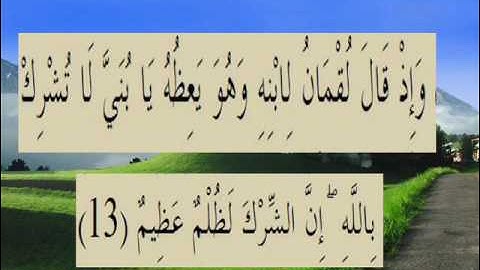 وَإِذْ قَالَ لُقْمَانُ لِابْنِهِ وَهُوَ يَعِظُهُ يَا بُنَيَّ لَا تُشْرِكْ
بِاللَّهِ ۖ إِنَّ الشِّرْكَ لَظُلْمٌ عَظِيمٌ (13)